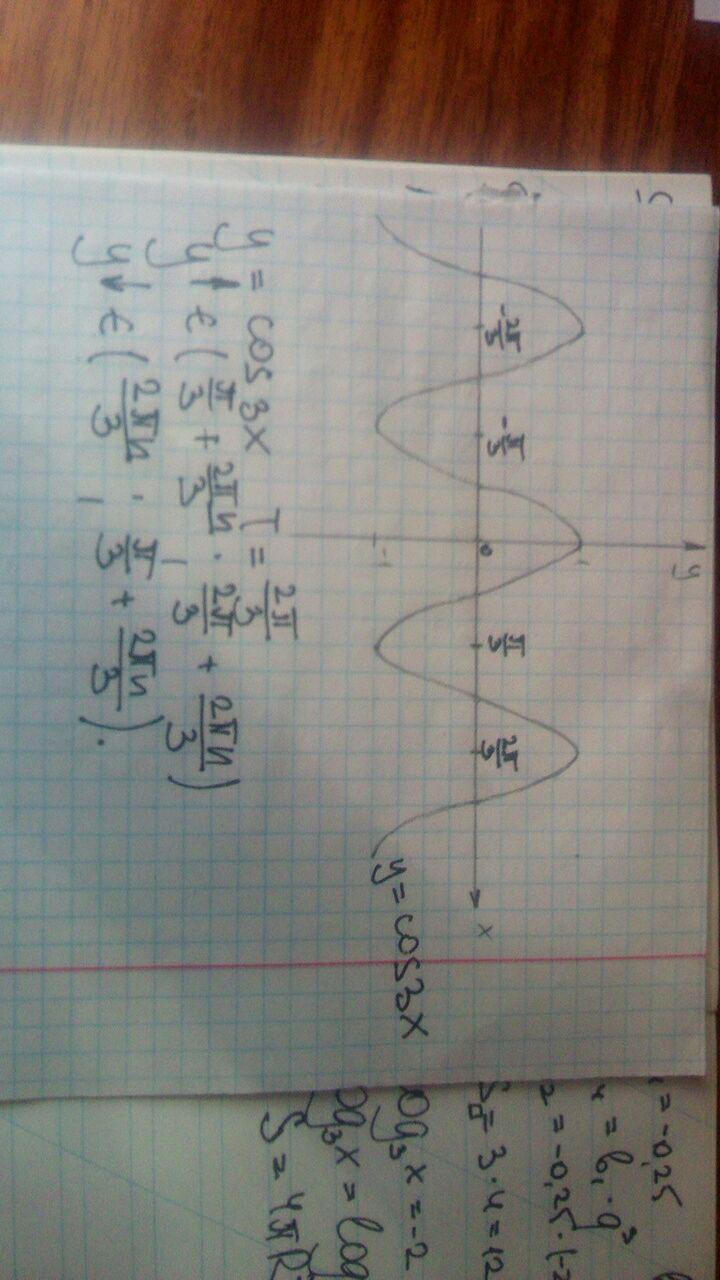 y
1
-2π/3 -π/3 0 π/3 2π/3 x
-1
y = cos3x
y = cos3x T = 2π/3
y↑ ∈ (π/3 + 2πn/3 ; 2π/3 + 2πn/3)
y↓ ∈ (2πn/3 ; π/3 + 2πn/3).
= -0,25
= b₁·q³
= -0,25·(-2
S□ = 3·4 = 12
log₃ x = -2
log₃ x = log
S = 4πR²